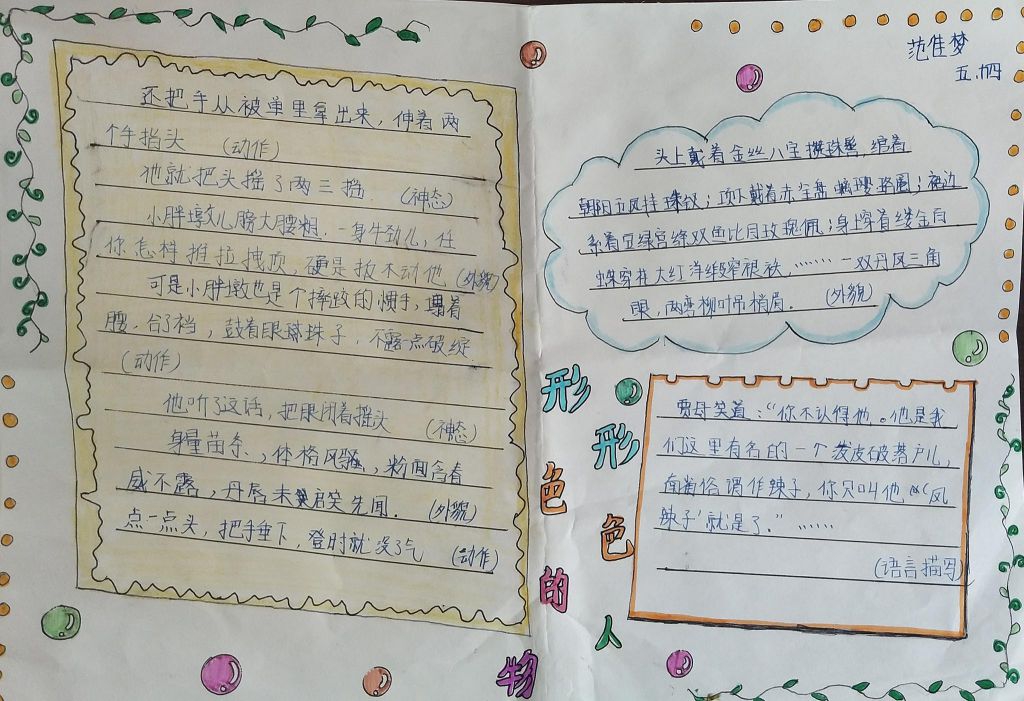 还把手从被单里拿出来，伸着两
个手指头 （动作）
他就把头摇了两三摇 （神态）
小胖墩儿膀大腰粗，一身牛劲儿，任
你怎样推拉拽顶，硬是扳不动他（外貌）
可是小胖墩也是个摔跤的惯手，塌着
腰，合了裆，鼓着眼珠子，不露一点破绽
（动作）
他听了这话，把眼闭着摇头 （神态）
身量苗条，体格风骚，粉面含春
威不露，丹唇未启笑先闻。（外貌）
点一点头，把手垂下，登时就没了气 （动作）
范佳梦
五.四
头上戴着金丝八宝攒珠髻，绾着
朝阳五凤挂珠钗；项下戴着赤金盘螭璎珞圈；裙边
系着豆绿宫绦双鱼比目玫瑰佩；身上穿着缕金百
蝶穿花大红洋缎窄裉袄，……一双丹凤三角
眼，两弯柳叶吊梢眉。（外貌）
贾母笑道：“你不认得他。他是我
们这里有名的一个泼皮破落户儿，
南省俗谓作辣子，你只叫他‘凤
辣子’就是了。”……
（语言描写）
形形色色的人物